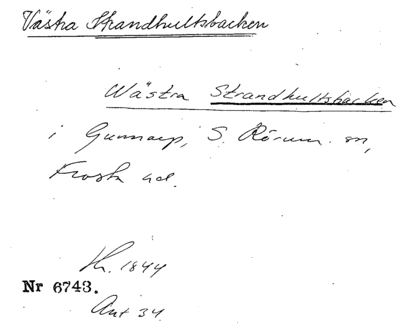 Västra Strandhultsbacken
Wästra Strandhultsbacken
i Gunnarp, S. Rörum sn,
Frosta hd.
Kt. 1844
Nr 6743.
Akt 34